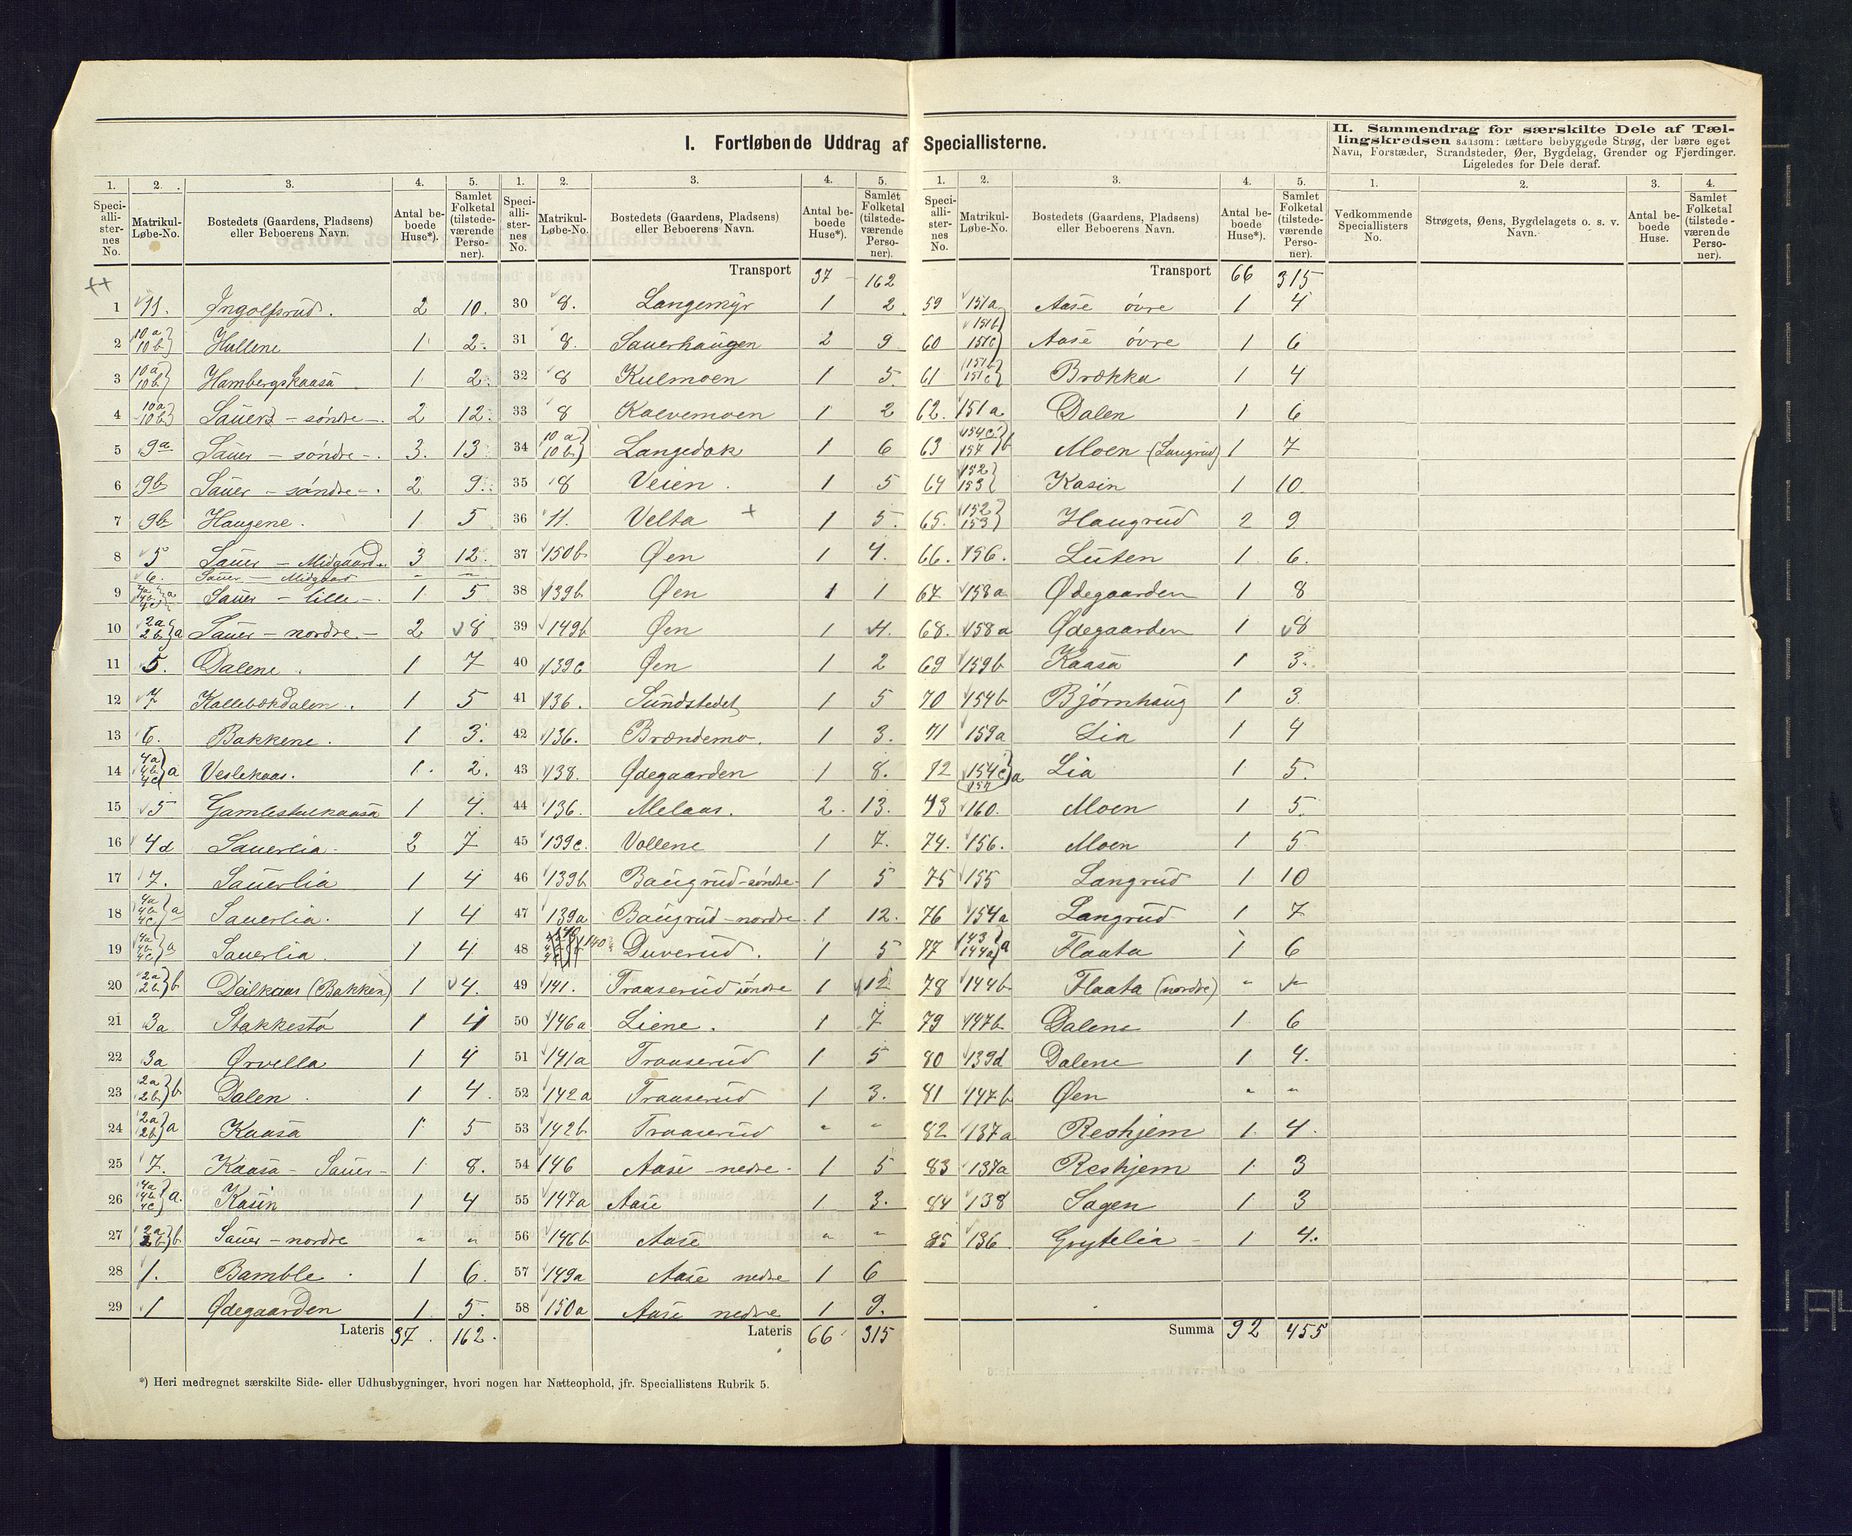 I. Fortløbende Uddrag af Speciallisterne.
II. Sammendrag for særskilte Dele af Tællingskredsen saasom: tættere bebyggede Strøg, der bære eget Navn, Forstæder, Strandsteder, Øer, Bygdelag, Grender og Fjerdinger. Ligeledes for Dele deraf.
1. 2. 3. 4. 5. 1. 2. 3. 4. 5. 1. 2. 3. 4. 5. 1. 2. 3. 4.
Speciallisternes No. Matrikul-Løbe-No. Bostedets (Gaardens, Pladsens) eller Beboerens Navn. Antal beboede Huse*). Samlet Folketal (tilstedeværende Personer).
Speciallisternes No. Matrikul-Løbe-No. Bostedets (Gaardens, Pladsens) eller Beboerens Navn. Antal beboede Huse*). Samlet Folketal (tilstedeværende Personer).
Speciallisternes No. Matrikul-Løbe-No. Bostedets (Gaardens, Pladsens) eller Beboerens Navn. Antal beboede Huse*). Samlet Folketal (tilstedeværende Personer).
Vedkommende Speciallisters No. Strøgets, Øens, Bygdelagets o. s. v. Navn. Antal beboede Huse. Samlet Folketal (tilstedeværende Personer).
1 11. Ingolfsrud. 2 10.
2 10a 10b} Hullene 1 2.
3 10a 10b} Hambergskaasa 1 2.
4 10a 10b} Sauer - søndre - 2 12.
5 9a Sauer - søndre - 3. 13
6 9b Sauer - søndre - 2 9.
7 9b Haugene. 1 5
8 5 Sauer - Midgaard 3 12.
6. Sauer - Midgaard - -
9 4a 4b 4c}a Sauer - lille - 1 5
10 2a 2b}a Sauer - nordre - 2 8
11 5. Dalene. 1 7
12 7 Kallebækdalen. 1 5
13 6. Bakkene. 1 3.
14 4a 4b 4c}a Veslekaas. 1. 2.
15 5 Gamlestulkaasa 1 4.
16 4d Sauerlia. 2 7
17 7. Sauerlia 1 4
18 4a 4b 4c}a Sauerlia. 1 4
19 4a 4b 4c}a Sauerlia. 1 4
20 2a 2b}b Deilkaas (Bakken) 1 4.
21 3a Stakkestø 1 4
22 3a Ørvella 1 4
23 2a 2b}b Dalen. 1 4.
24 2a 2b}a Kaasa 1 5
25 7. Kaasa - Sauer - 1 8.
26 4a 4b 4c}a. Kasin 1 4
27 2a 2b}b Sauer - nordre " "
28 1. Bamble. 1 6.
29 1 Ødegaarden 1. 5.
Lateris 37. 162.
Transport 37 - 162
30 8. Langemyr 1 2.
31 8. Sauerhaugen 2 9
32 8 Kulmoen 1 5.
33 8 Kolvemoen 1 2
34 10a 10b} Langedok 1 6
35 8 Veien. 1 5
36 11. Velta + 1 5.
37 150b Øen 1 4.
38 139b Øen 1 1
39 149b Øen 1 4.
40 139c Øen 1 2
41 136. Sundstedet 1 5
42 136. Brændemo. 1 3.
43 138. Ødegaarden 1 8.
44 136. Melaas. 2. 13.
45 139c. Vollene 1 7.
46 139b Baugrud - søndre - 1 5
47 139a Baugrud - nordre. 1 12.
48 140 Duverud. 1 5
49 141. Traaserud søndre 1 12
50 146a Liene. 1 7
51 141a Traaserud 1 5
52 142a Traaserud 1 3.
53 142b Traaserud " "
54 146 Aase - nedre - 1 5
55 147a Aase 1 3.
56 146b Aase " "
57 149a Aase nedre 1 6
58 150a Aase nedre 1 9.
Lateris 66 315
Transport 66 315
59 151a Aase øvre 1 4
60 151b 151c} Aase øvre 1 6
61 151b 151c} Brække 1 4
62. 151a Dalen 1 6
63 154c 157}b Moen (Langrud) 1 7
64 152 153} Kasin 1 10.
65. 152 153} Haugrud 2 9
66. 156. Luten 1 6.
67 158a Ødegaarden 1 8
68. 158a Ødegaarden 1 8
69 159b Kaasa 1 3.
70 154b Bjørnhaug 1 3.
71 159a Lia 1 4
72 154c 157}a Lia 1 5.
73 160. Moen 1 5.
74. 156. Moen 1 5
75 155 Langrud 1 10
76 154a Langrud 1 7
77 143 144a}a Flaata 1 6
78 144b Flaata (nordre) " "
79 147b Dalene 1 6
80 139d Dalene 1 4.
81 147b Øen " "
82 137a Reshjem 1. 4.
83 137a Reshjem 1 3
84 138 Sagen 1 3
85 136 Grytelia - 1 4.
Summa 92 455
*) Heri medregnet særskilte Side- eller Udhusbygninger, hvori nogen har Natteophold, jfr. Speciallistens Rubrik 5.